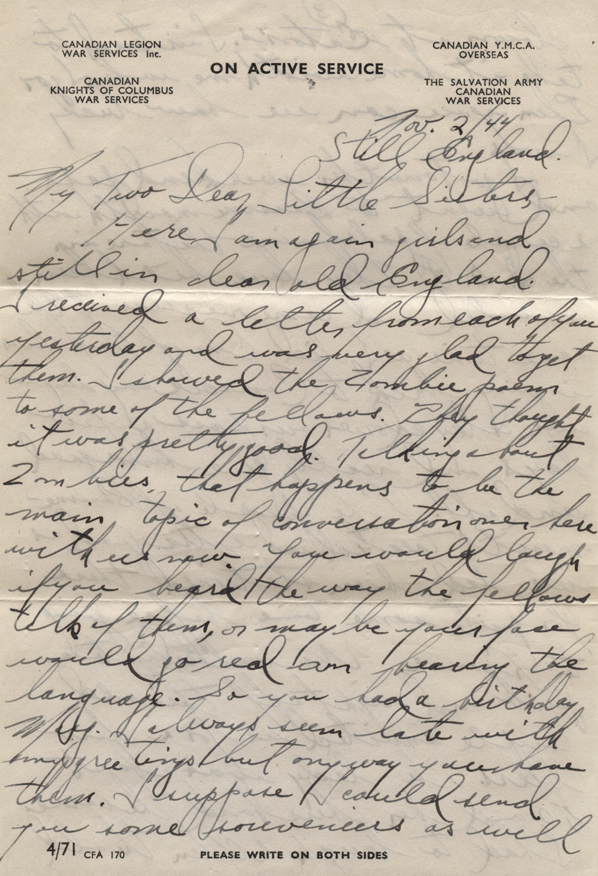 CANADIAN LEGION
WAR SERVICES Inc.
CANADIAN
KNIGHTS OF COLUMBUS
WAR SERVICES
ON ACTIVE SERVICE
CANADIAN Y.M.C.A.
OVERSEAS
THE SALVATION ARMY
CANADIAN
WAR SERVICES
Nov. 2/44
Still England.
My Two Dear Little Sisters
Here I am again girls and
still in dear old England.
I received a letter from each of you
yesterday and was very glad to get
them. I showed the Zombie poem
to some of the fellows. They thought
it was pretty good. Talking about
Zombies, that happens to be the
main topic of conversation over here
with us now. You would laugh
if you heard the way the fellows
talk of them, or may be your face
would go red on hearing the
language. So you had a birthday
. I always seem late with
my greetings but anyway you have
them. I suppose I could send
you some souveniers as well
4/71 CFA 170
PLEASE WRITE ON BOTH SIDES